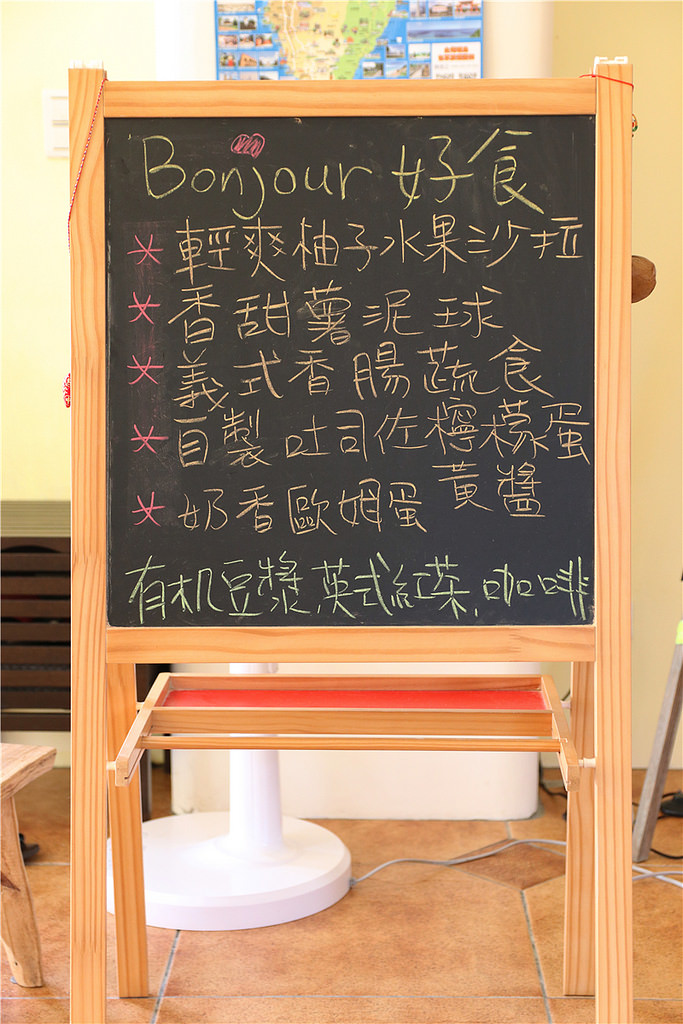 Bonjour 好食
* 輕爽柚子水果沙拉
* 香甜薯泥球
* 義式香腸蔬食
* 自製吐司佐檸檬蛋
黃醬
* 奶香歐姆蛋
有机豆漿.英式紅茶.咖啡